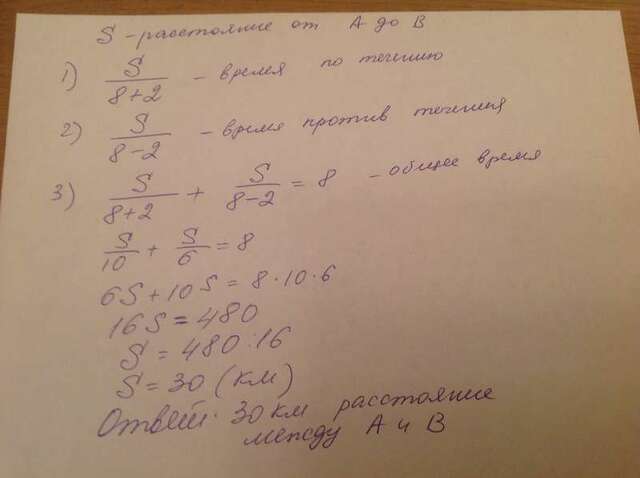 S - расстояние от А до В
1) S/(8+2) - время по течению
2) S/(8-2) - время против течения
3) S/(8+2) + S/(8-2) = 8 - общее время
S/10 + S/6 = 8
6S + 10S = 8·10·6
16S = 480
S = 480:16
S = 30 (км)
Ответ: 30 км расстояние
между А и В